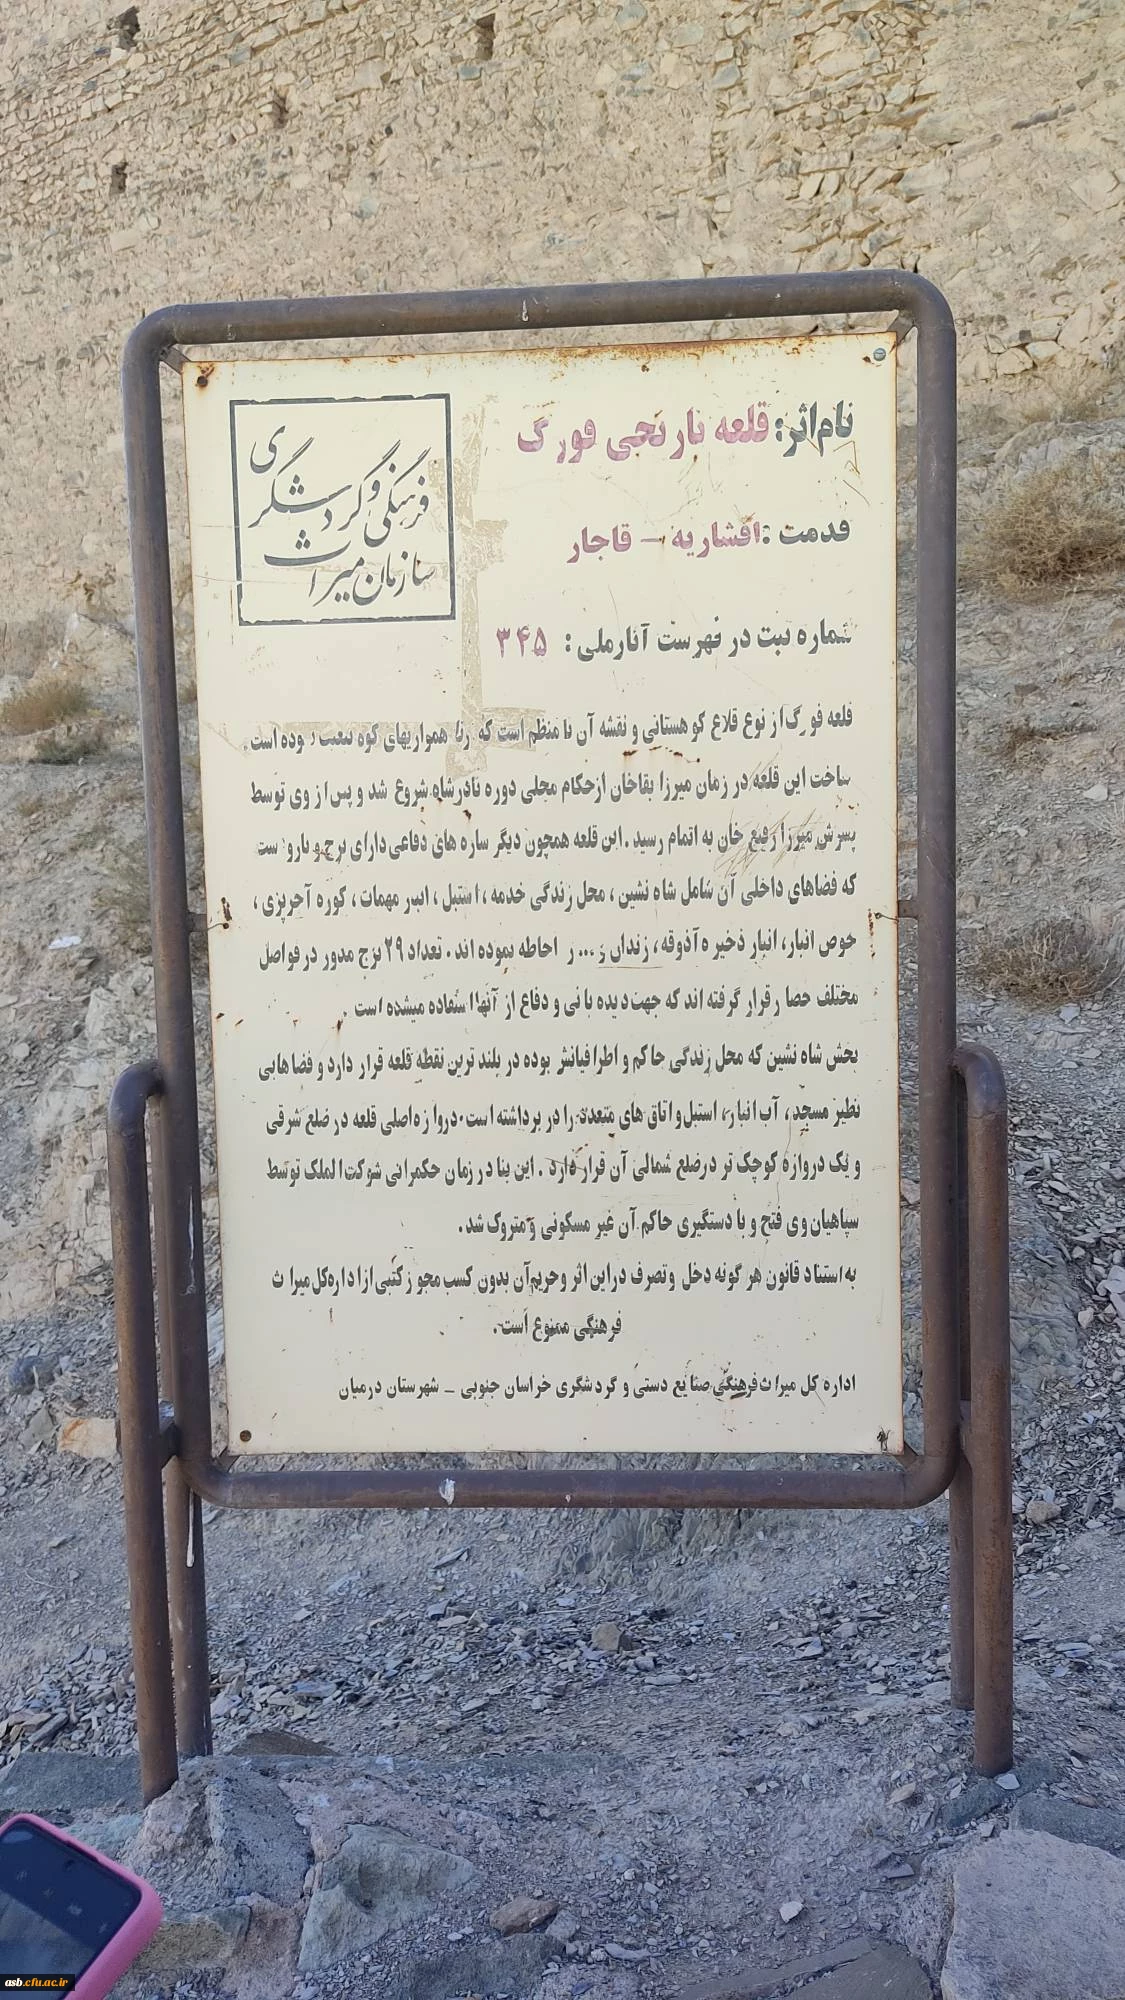 سازمان میراث
فرهنگی و گردشگری
نام اثر: قلعه تاریخی فورگ
قدمت : افشاریه – قاجار
شماره ثبت در فهرست آثار ملی : ۳۴۵
قلعه فورگ از نوع قلاع کوهستانی و نقشه آن نا منظم است که از نا همواریهای کوه تبعیت نموده است.
ساخت این قلعه در زمان میرزا بقاخان از حکام محلی دوره نادرشاه شروع شد و پس از وی توسط
پسرش میرزا رفیع خان به اتمام رسید . این قلعه همچون دیگر سازه های دفاعی دارای برج و بارو است
که فضاهای داخلی آن شامل شاه نشین ، محل زندگی خدمه ، استبل ، انبار مهمات ، کوره آجرپزی ،
حوض انبار، انبار ذخیره آذوقه، زندان و ... را احاطه نموده اند . تعداد ۲۹ برج مدور در فواصل
مختلف حصار قرار گرفته اند که جهت دیده بانی و دفاع از آنها استفاده میشده است .
بخش شاه نشین که محل زندگی حاکم و اطرافیانش بوده در بلند ترین نقطه قلعه قرار دارد و فضاهایی
نظیر مسجد ، آب انبار، استبل و اتاق های متعدد را در برداشته است . دروازه اصلی قلعه در ضلع شرقی
و یک دروازه کوچک تر در ضلع شمالی آن قرار دارد . این بنا در زمان حکمرانی شوکت الملک توسط
سپاهیان وی فتح و با دستگیری حاکم آن غیر مسکونی و متروک شد .
به استناد قانون هر گونه دخل و تصرف در این اثر و حریم آن بدون کسب مجوز کتبی از اداره کل میراث
فرهنگی ممنوع است .
اداره کل میراث فرهنگی صنایع دستی و گردشگری خراسان جنوبی – شهرستان درمیان
asb.cfu.ac.ir